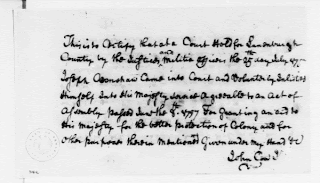 This is to Certify that at a Court Held for Lunenburgh
County by the Justices and Militia officers the 25th day July 175
Joseph Crenshaw Came into Court and Voluntarily Inlisted
Himself Into His Majestys Service Agreeable to an Act of
Assembly passed June the 8th 1757 For Granting an aid to
His Majesty for the better protection of Colony and for
other purposes therein mentioned Given under my Hand &c
John Cox J